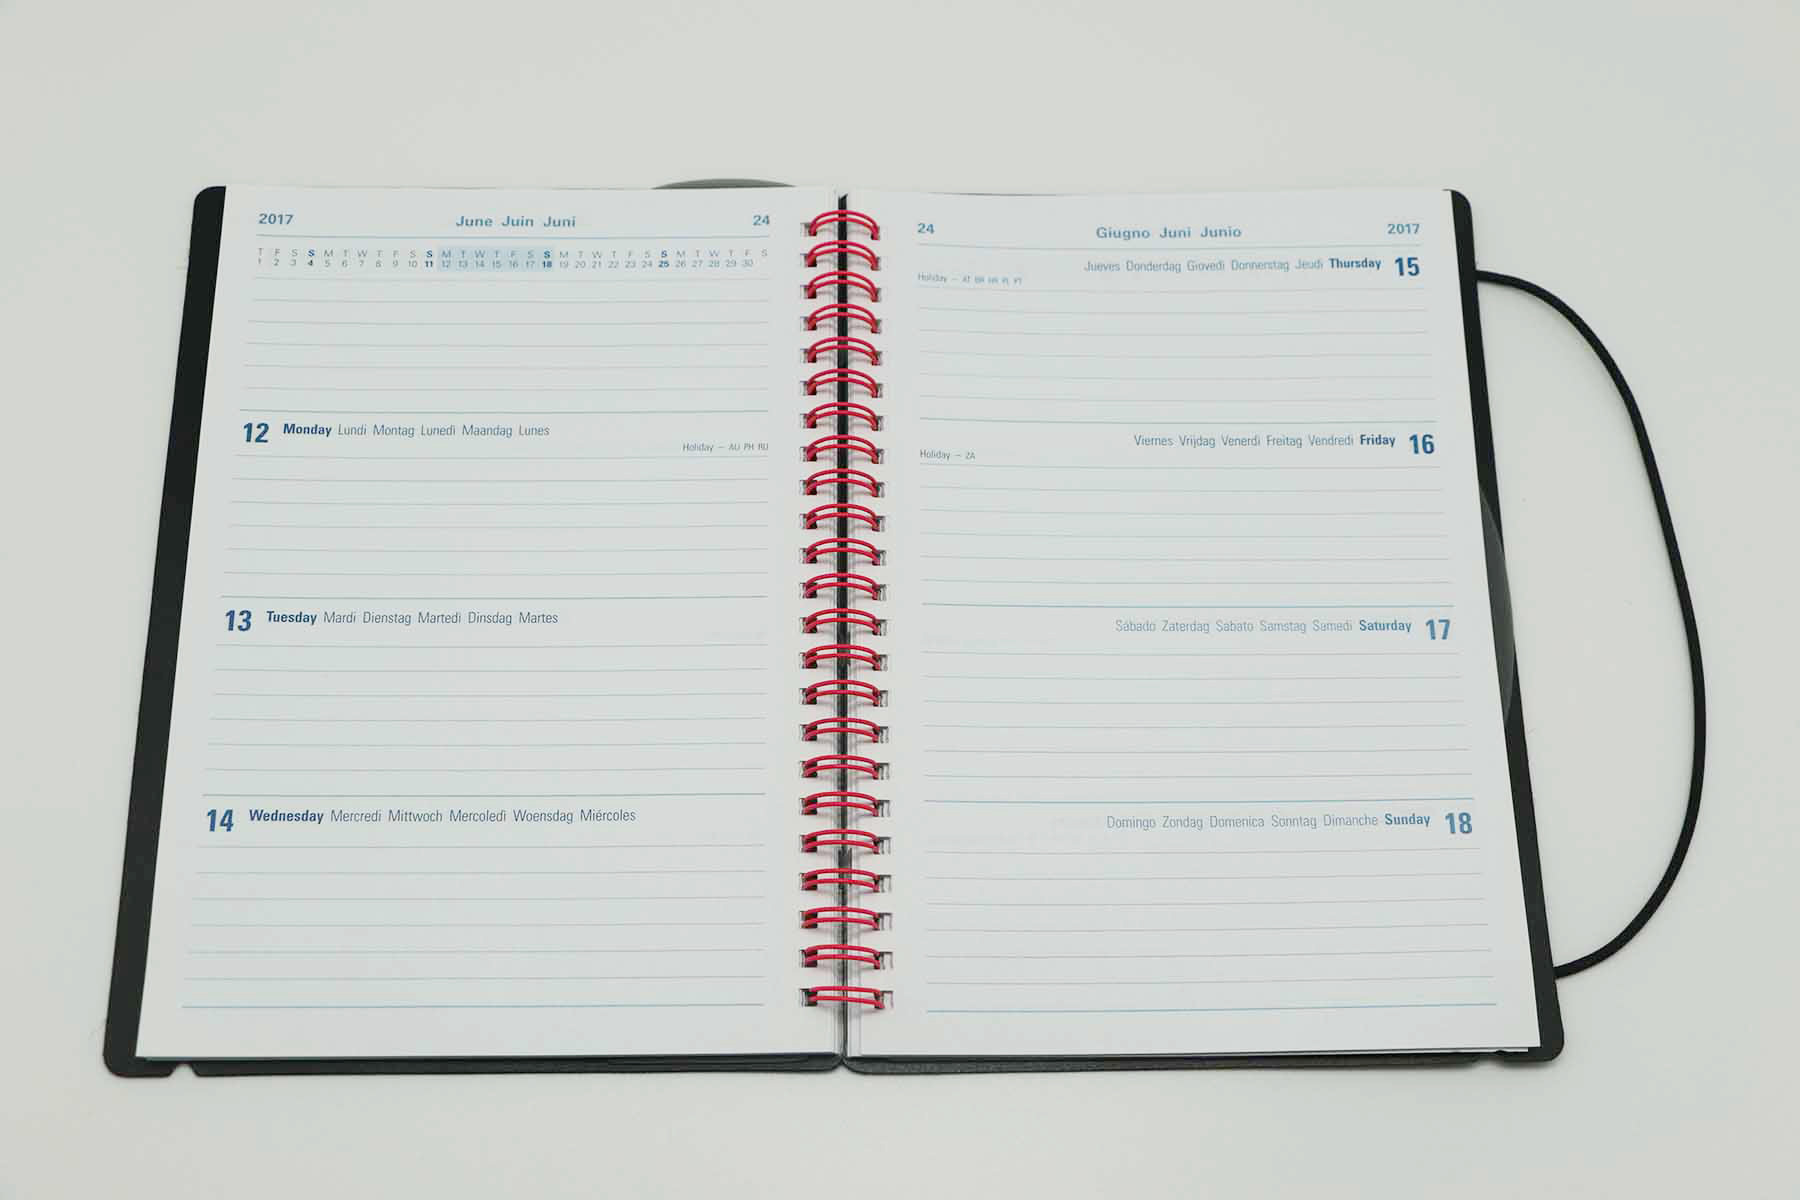 2017 June Juin Juni 24
T F S S M T W T F S S M T W T F S S M T W T F S S M T W T F S
1 2 3 4 5 6 7 8 9 10 11 12 13 14 15 16 17 18 19 20 21 22 23 24 25 26 27 28 29 30
12 Monday Lundi Montag Lunedì Maandag Lunes
Holiday – AU PH RU
13 Tuesday Mardi Dienstag Martedì Dinsdag Martes
14 Wednesday Mercredi Mittwoch Mercoledì Woensdag Miércoles
24 Giugno Juni Junio 2017
Jueves Donderdag Giovedì Donnerstag Jeudi Thursday 15
Holiday – AT BR HR PL PT
Viernes Vrijdag Venerdì Freitag Vendredi Friday 16
Holiday – ZA
Sábado Zaterdag Sabato Samstag Samedi Saturday 17
Domingo Zondag Domenica Sonntag Dimanche Sunday 18